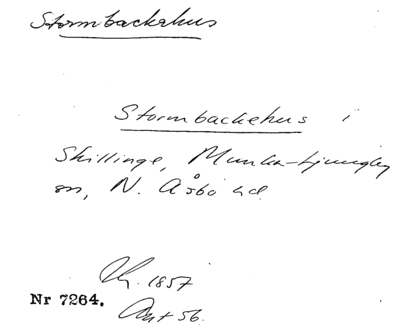 Stormbackehus
Stormbackehus i
Skillinge, Munka-Ljungby
sn, N. Åsbo hd.
1857
Nr 7264. Ant 56.